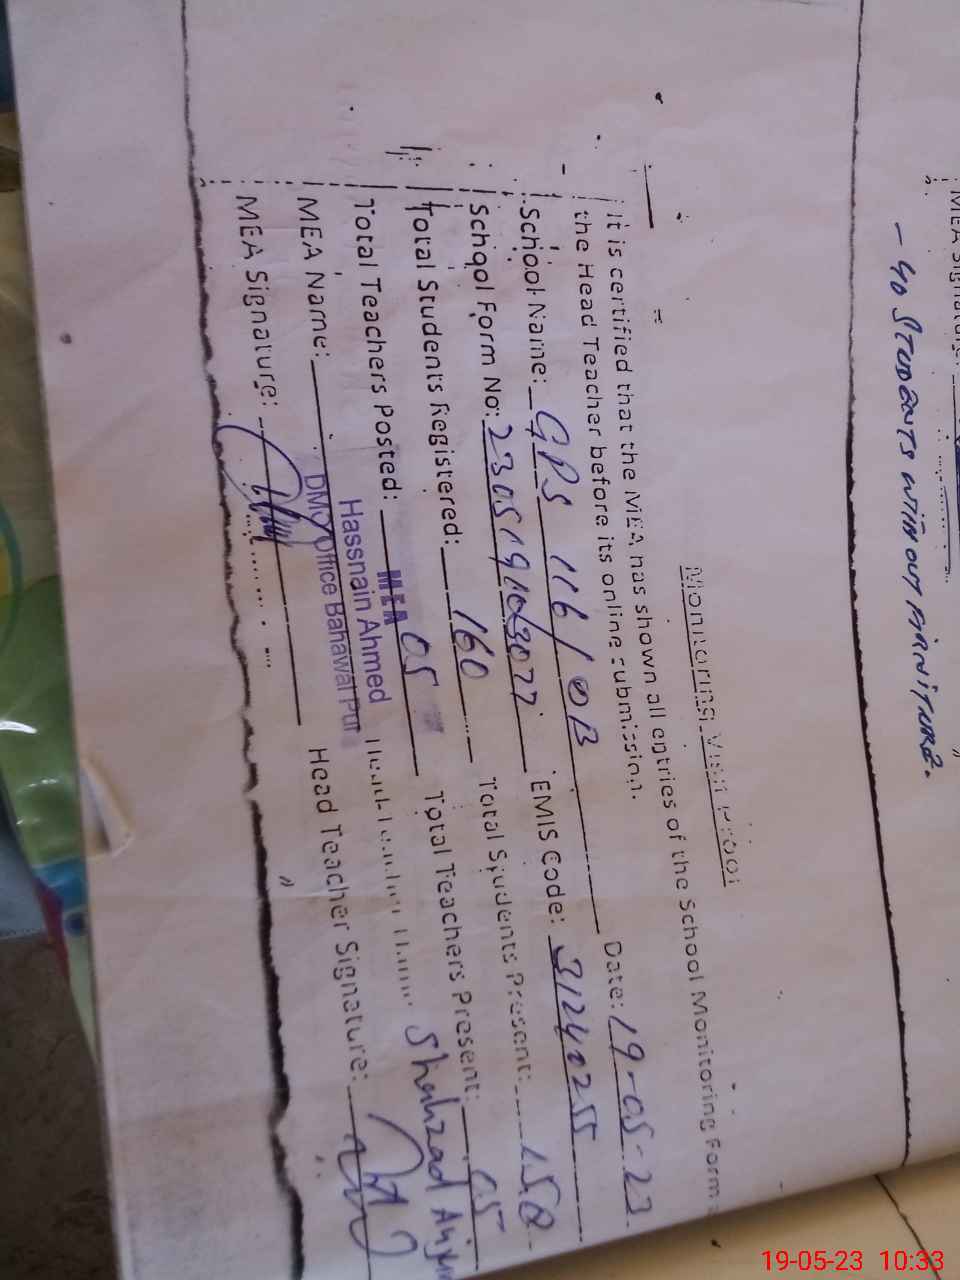 MEA Signature:
- 40 STUDENTS WITHOUT FIRNITURE.
Monitoring Visit Proof
It is certified that the MEA has shown all entries of the School Monitoring Form
the Head Teacher before its online submission.
School Name: GPS 116/DB Date: 19-05-23
School Form No: EMIS Code: 31240255
Total Students Registered: 160 Total Students Present: 158
Total Teachers Posted: 05 Total Teachers Present: 05
MEA
Hassnain Ahmed
DMO Office Bahawal Pur
MEA Name: Head Teacher Name: Shahzad Anjum
MEA Signature: Head Teacher Signature:
19-05-23 10:33